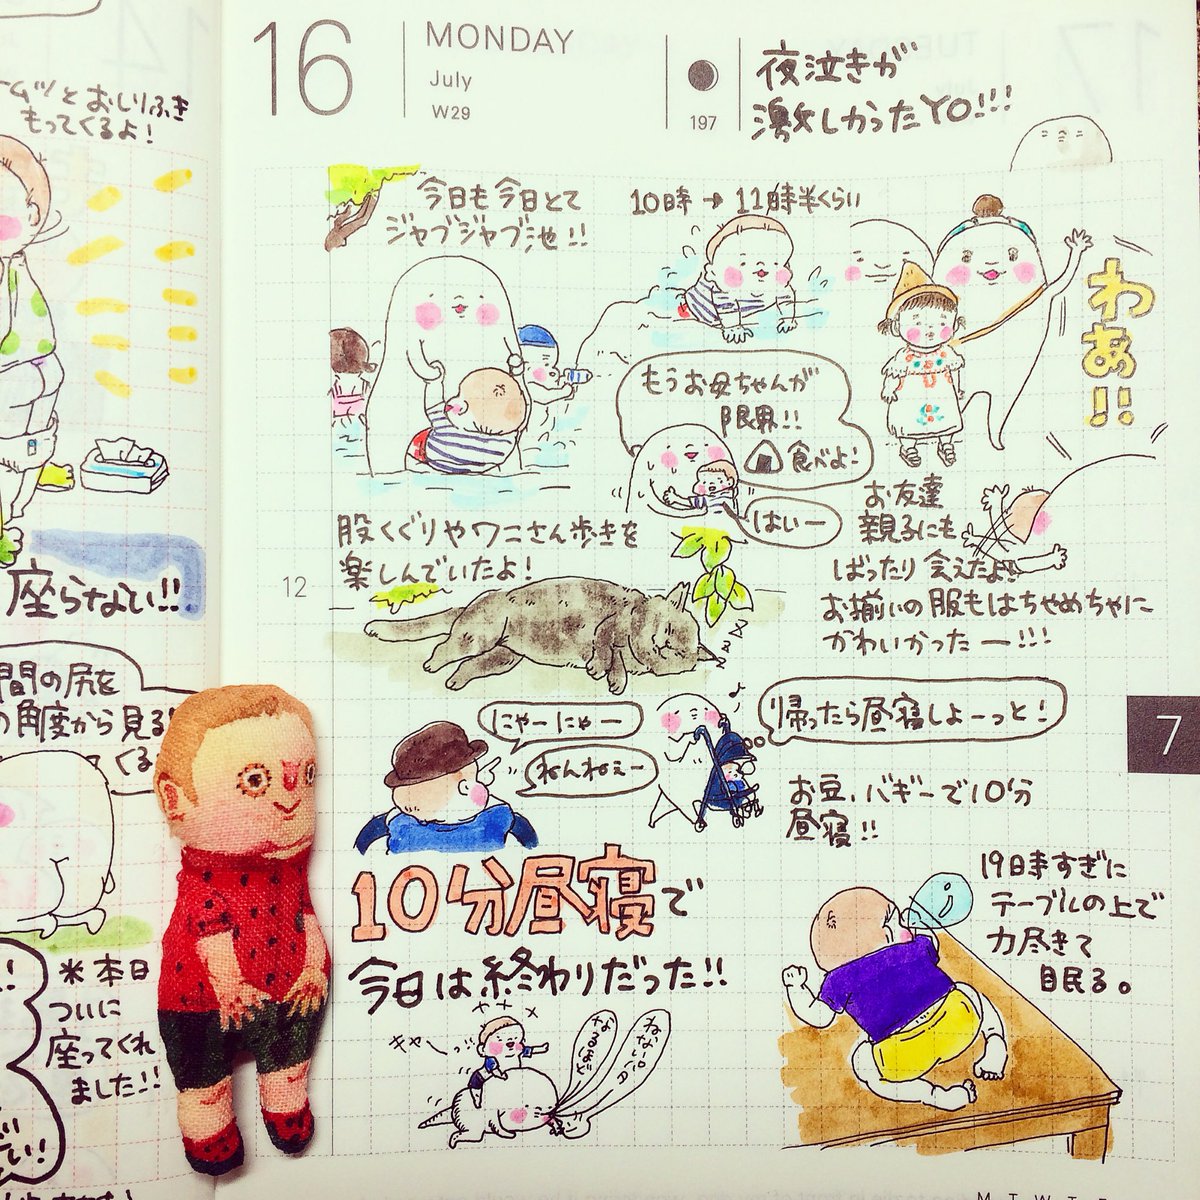 もってくるよ！
座らない!!
間の尻を
の角度から見る
くる
＊本日
ついに
座ってくれ
ました!!
16
MONDAY
July
W29
197
夜泣きが
激しかったYO!!!
今日も今日とて
ジャブジャブ池!!
10時→11時半くらい
わぁ!!
もうお母ちゃんが
限界!!
食べよ!
はいー
股くぐりやワニさん歩きを
楽しんでいたよ!
お友達
親子にも
ばったり会えたよ!
お揃いの服もはちゃめちゃに
かわいかったー!!!
12
zzz
にゃーにゃー
ねんねぇー
帰ったら昼寝しよーっと!
7
お豆、バギーで10分
昼寝!!
10分昼寝で
今日は終わりだった!!
キャー
なるほど
ねないパタ
19時すぎに
テーブルの上で
力尽きて
眠る。